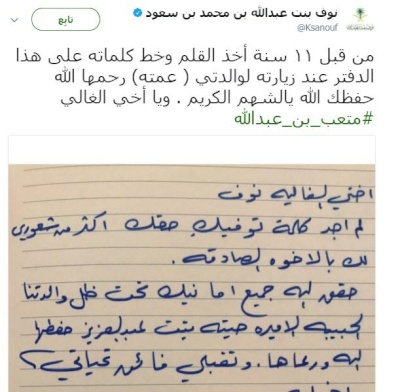 نوف بنت عبدالله بن محمد بن سعود
@Ksanouf
تابع
من قبل ١١ سنة أخذ القلم وخط كلماته على هذا
الدفتر عند زيارته لوالدتي ( عمته) رحمها الله
حفظك الله يالشهم الكريم . ويا أخي الغالي
#متعب_بن_عبدالله
اختي الغاليه نوف
لم اجد كلمة توفيك حقك اكثر من شعوري
لك بالاخوه الصادقه .
حقق الله جميع امانيك تحت ظل والدتنا
الحبيبه الاميره حيته بنت عبدالعزيز حفظها
الله ورعاها . وتقبلي فائق تحياتي